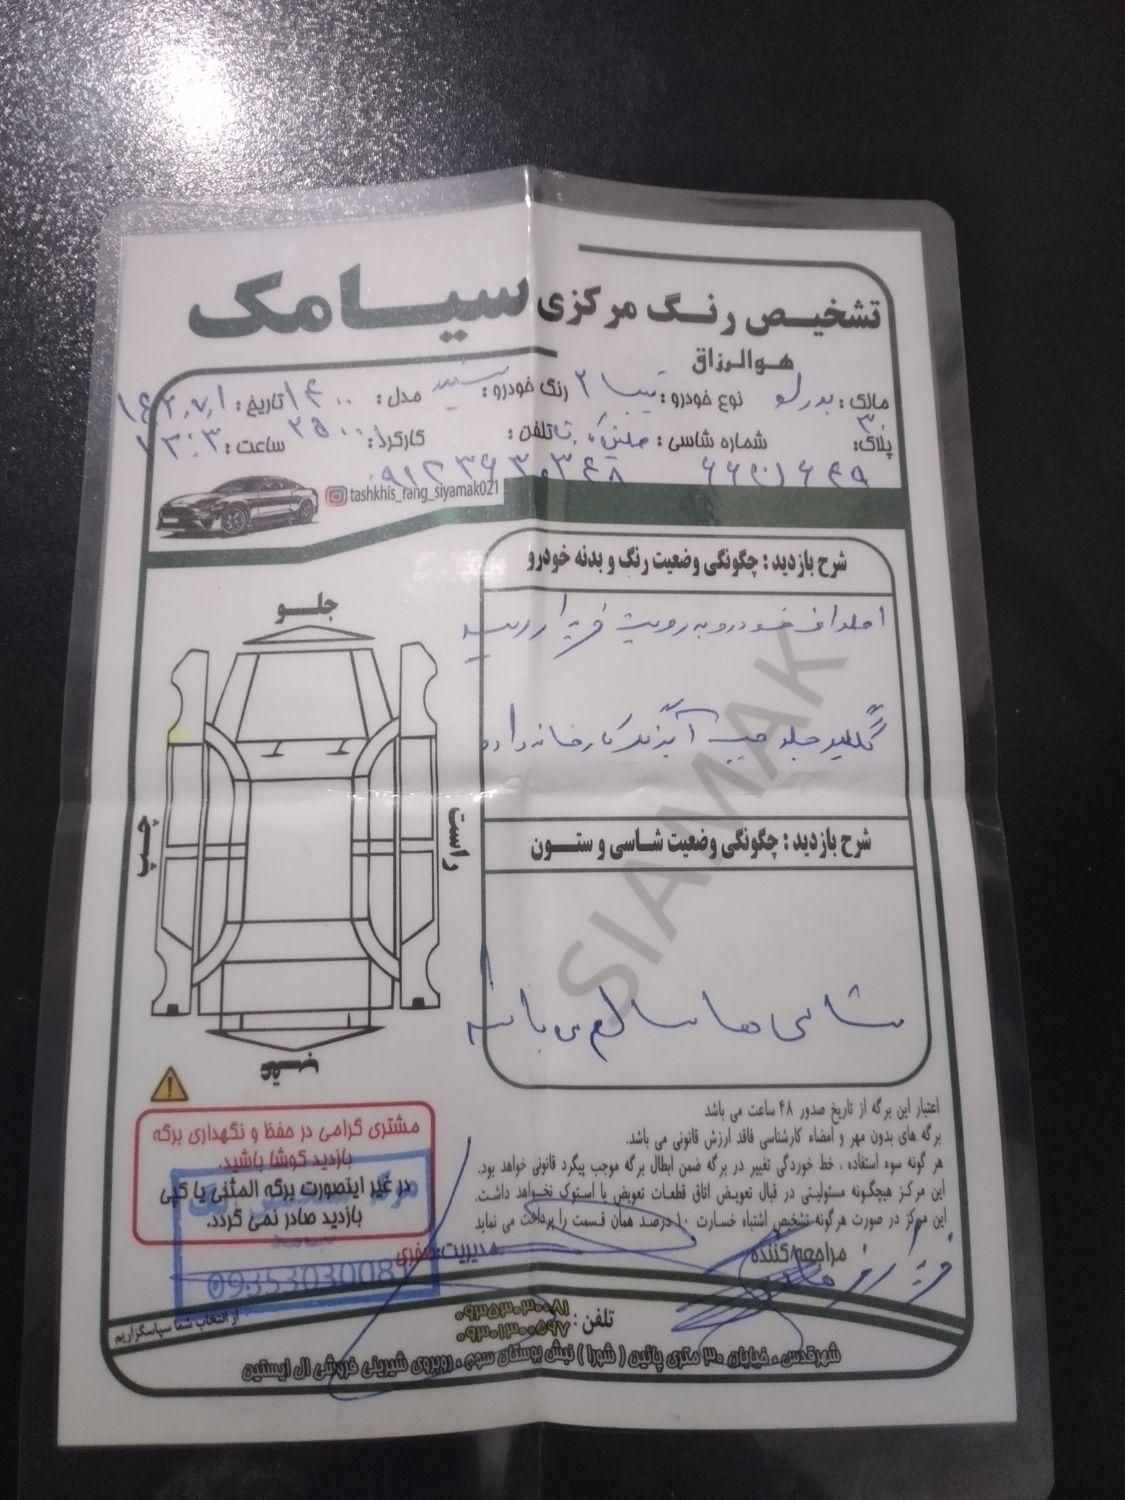 تشخیـص رنـگ مرکزی سیـامک
هـوالـرزاق
مالک : بدرلو نوع خودرو : تیبا ۲ رنگ خودرو : سفید مدل : ۱۴۰۰ تاریخ :
پلاک: شماره شاسی : تلفن : کارکرد: ساعت :
tashkhis_rang_siyamak021
شرح بازدید : چگونگی وضعیت رنگ و بدنه خودرو
اطراف خودرو به رویت
گلگیر جلو چپ کارخانه دارد
جلــو
راست
چـپ
عقـب
شرح بازدید : چگونگی وضعیت شـاسی و ستــون
شاسی ها سالم می باشد
SIAMAK
اعتبار این برگه از تاریخ صدور ۴۸ ساعت می باشد
برگه های بدون مهر و امضاء کارشناسی فاقد ارزش قانونی می باشد.
هر گونه سوء استفاده ، خط خوردگی تغییر در برگه ضمن ابطال برگه موجب پیگرد قانونی خواهد بود.
این مرکز هیچگونه مسئولیتی در قبال تعویض اتاق قطعات تعویض یا استوک نخواهد داشت.
این مرکز در صورت هرگونه تشخیص اشتباه خسارت ۱۰ درصد همان قسمت را پرداخت می نماید
مشتری گرامی در حفظ و نگهداری برگه
بازدید کوشا باشید.
در غیر اینصورت برگه المثنی یا کپی
بازدید صادر نمی گردد.
مراجعه کننده
مدیریت: صفری
09353030081
از انتخاب شما سپاسگزاریم
تلفن : ۰۹۳۵۳۰۳۰۰۸۱
۰۹۳۰۱۳۰۰۵۹۷
شهرقدس ، خیابان ۳۰ متری پائین ( شورا ) نبش بوستان سوم ، روبروی شیرینی فروشی ال ایستین